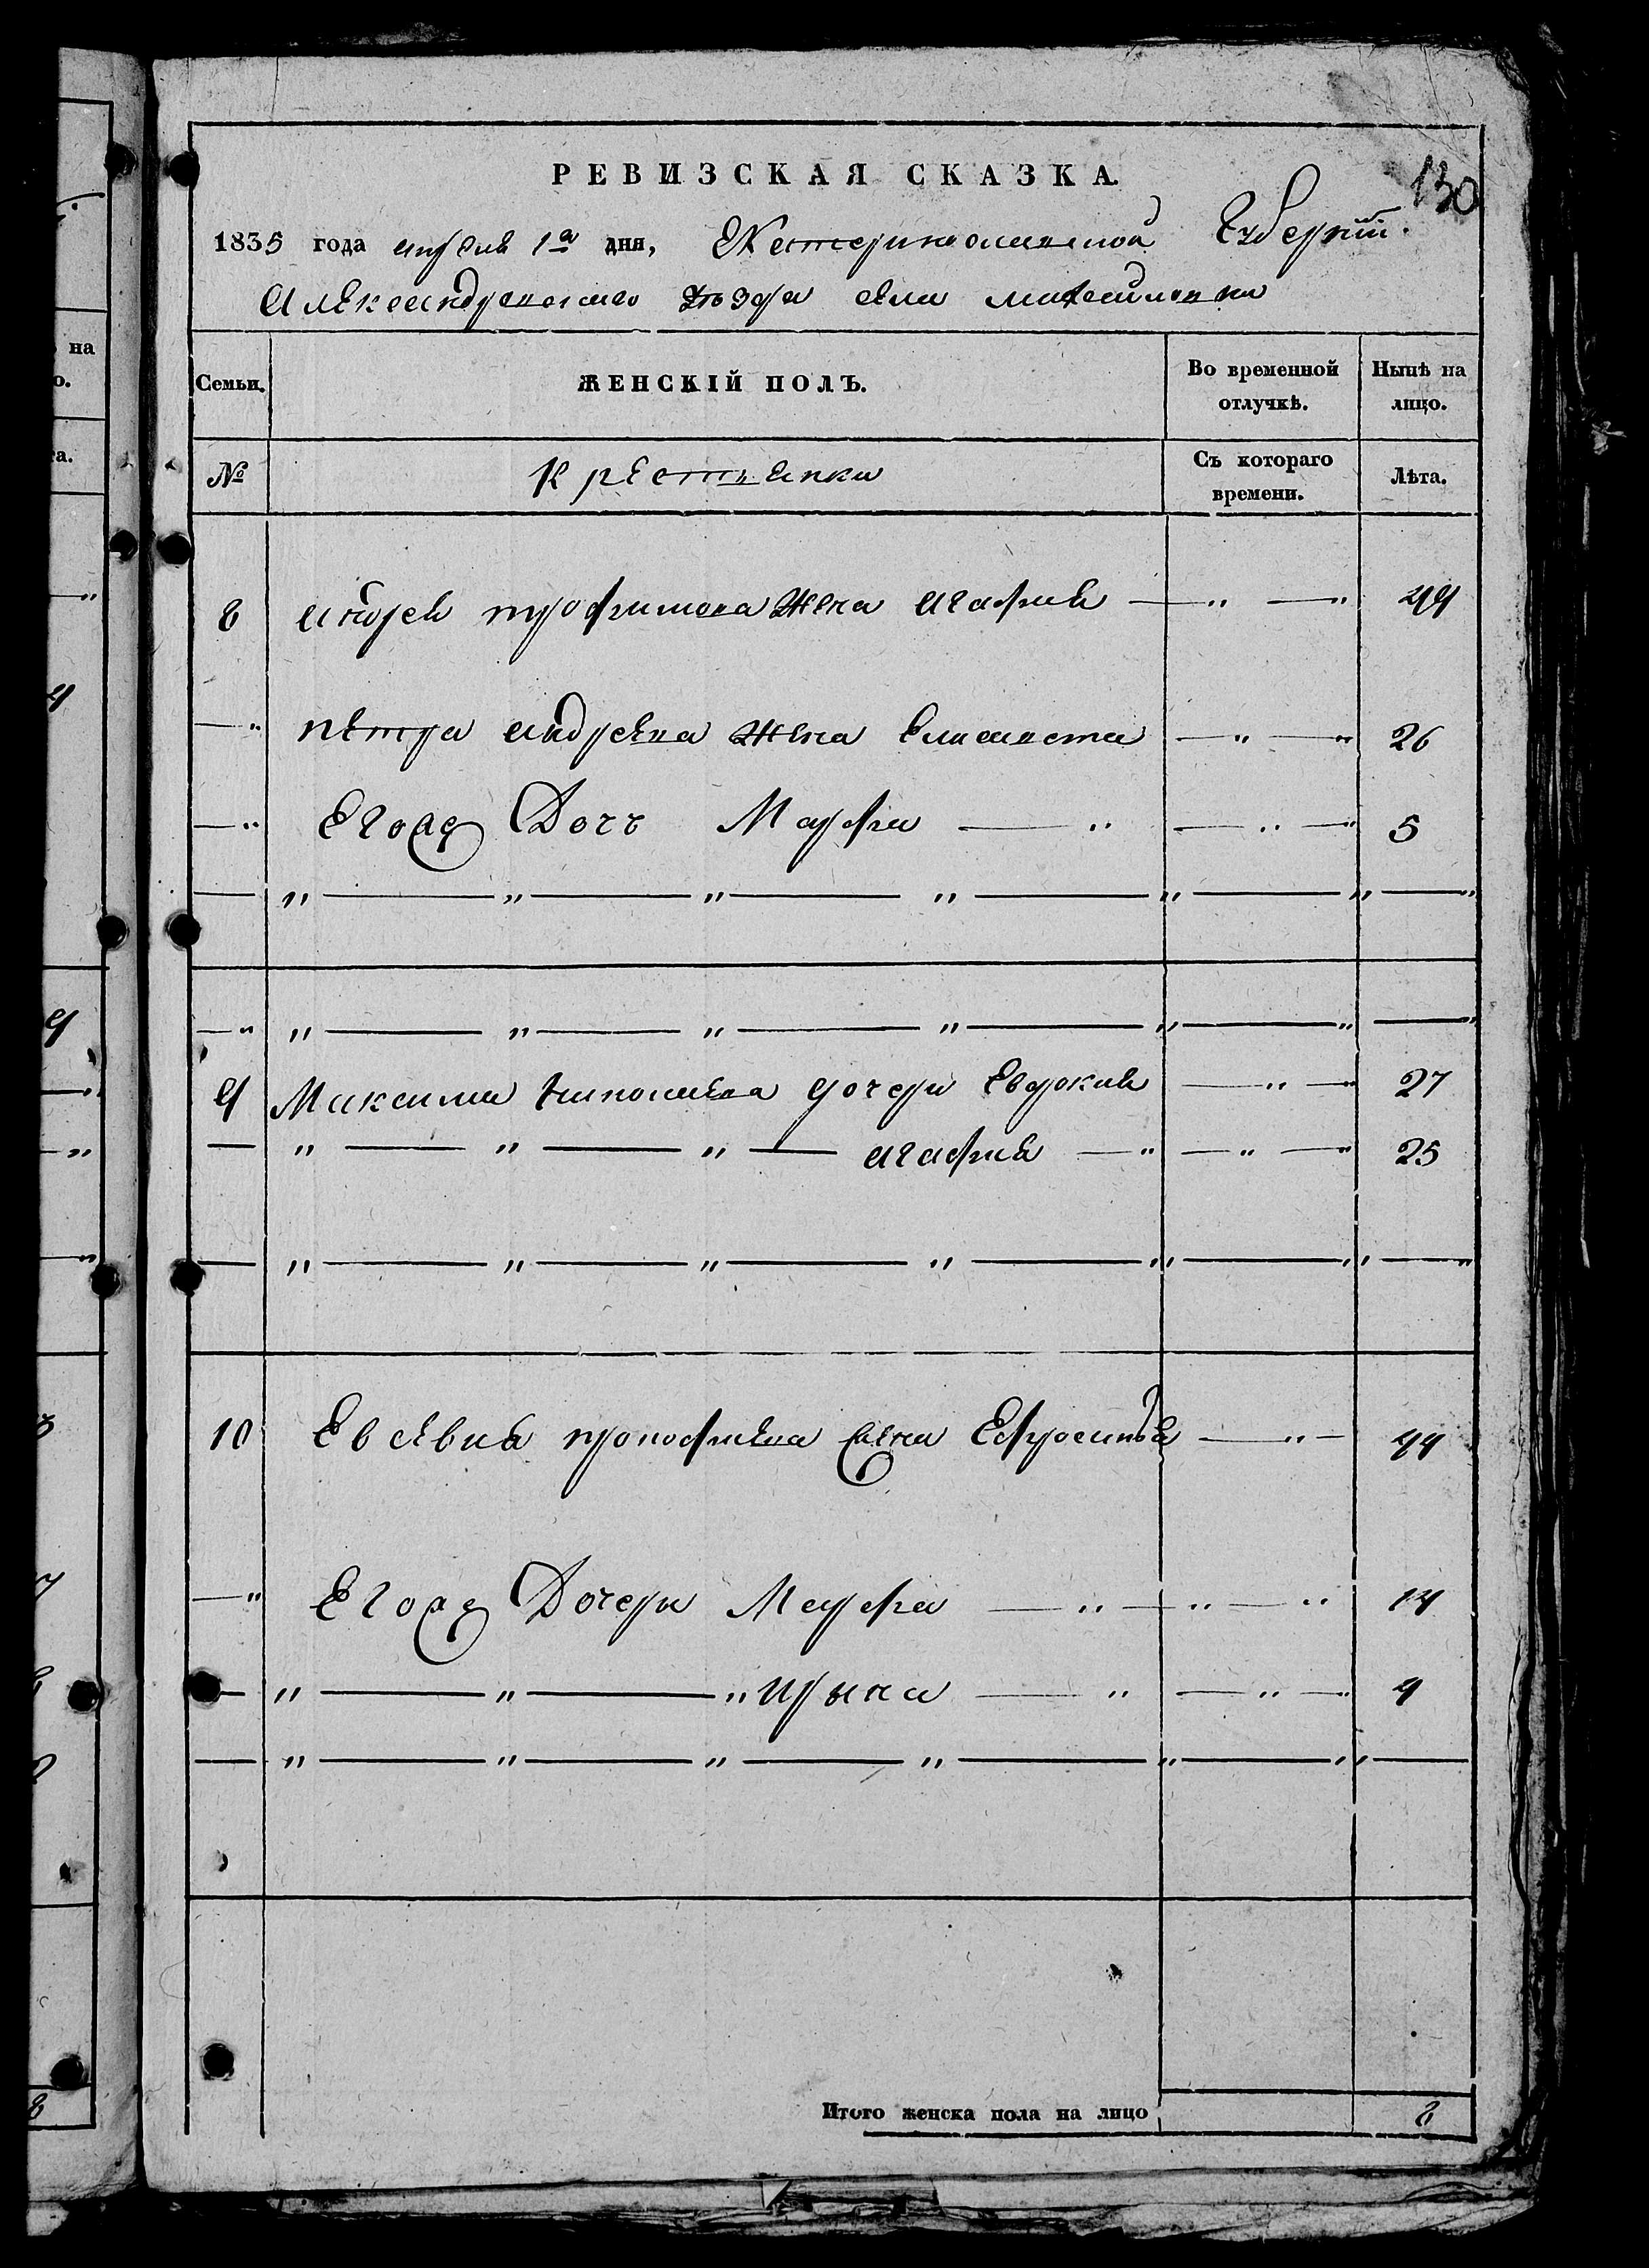 РЕВИЗСКАЯ СКАЗКА.
130
1835 года апреля 1го дня, Екатеринославской Губернии.
Александровского уезда села Михайловки
Семьи. ЖЕНСКІЙ ПОЛЪ. Во временной отлучкѣ. Нынѣ на лицо.
№ Крестьянки Съ котораго времени. Лѣта.
8 андрея трофимова жена агафия — „ — „ 49
— „ петра андреева жена Елисавета — „ — „ 26
— „ Егоже Дочь Марфа — „ — „ — „ 5
— „ — „ — „ — „ — „ — „ — „
— „ „ — „ — „ — „ — „ — „ — „
9 Максима дочери Евдокия — „ — „ 27
— „ — „ — „ — агафия — „ — „ — „ 25
— „ — „ — „ — „ — „ — „ — „
10 Евсевия прокофиева жена Ефросиния — „ — 44
— „ Егоже Дочери Марфа — „ — „ — „ 14
— „ — „ — „ Ирына — „ — „ — „ 9
— „ — „ — „ — „ — „ — „ —
Итого женска пола на лицо 8